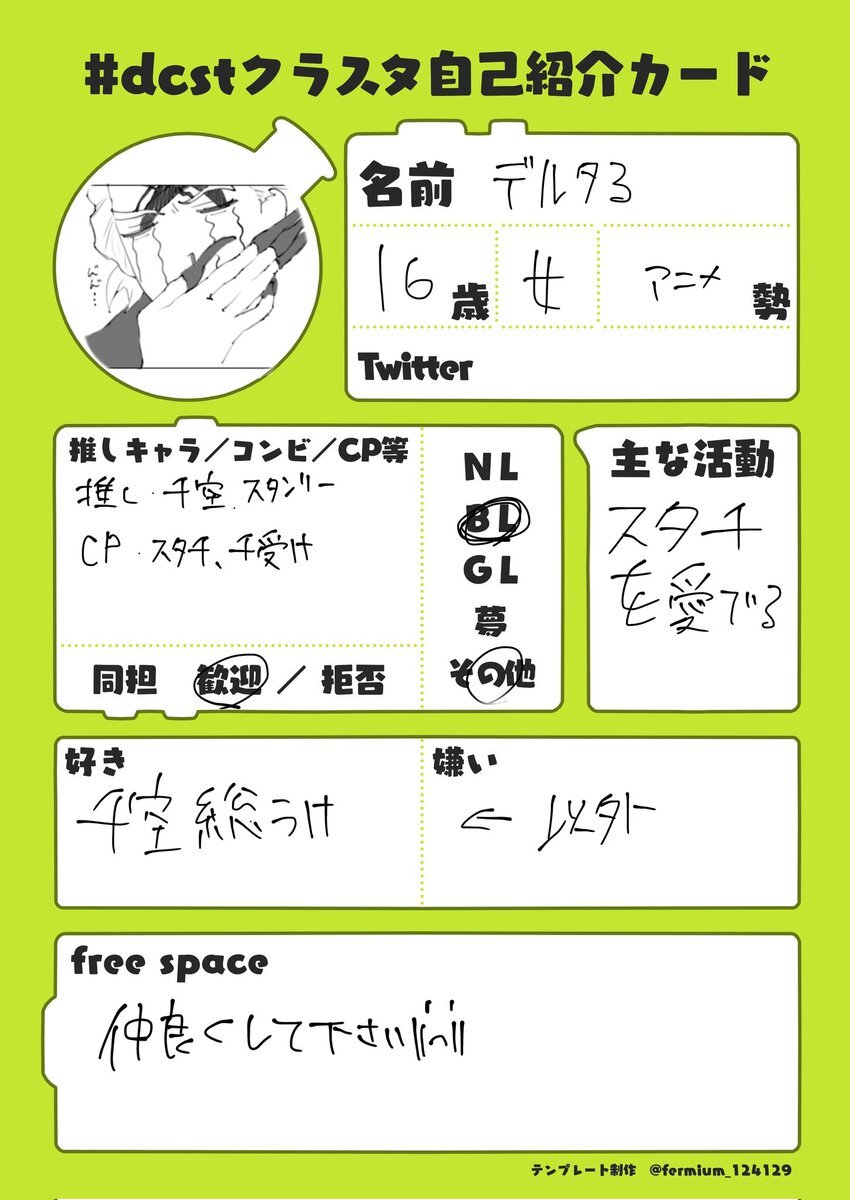 #dcstクラスタ自己紹介カード
んん…
名前 デルタる
16歳 女 アニメ勢
Twitter
推しキャラ/コンビ/CP等
推し・千空、スタンリー
CP・スタチ、千受け
同担 歓迎 / 拒否
NL
BL
GL
夢
その他
主な活動
スタチ
を愛でる
好き
千空総うけ
嫌い
← 以外
free space
仲良くして下さい
テンプレート制作 @fermium_124129